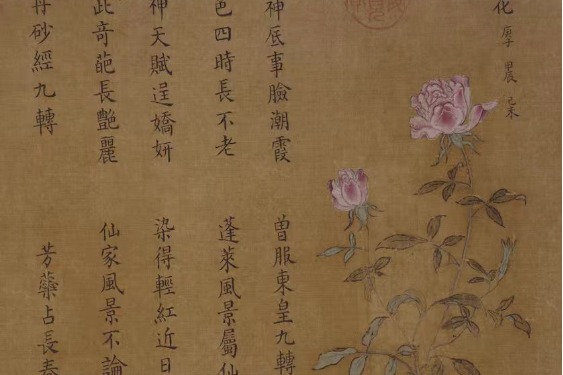 神底事臉潮霞 曾服東皇九轉
色四時長不老 蓬萊風景屬仙
神天賦逞嬌妍 染得輕紅近日
此奇葩長艷麗 仙家風景不論
丹砂經九轉 芳蘂占長春